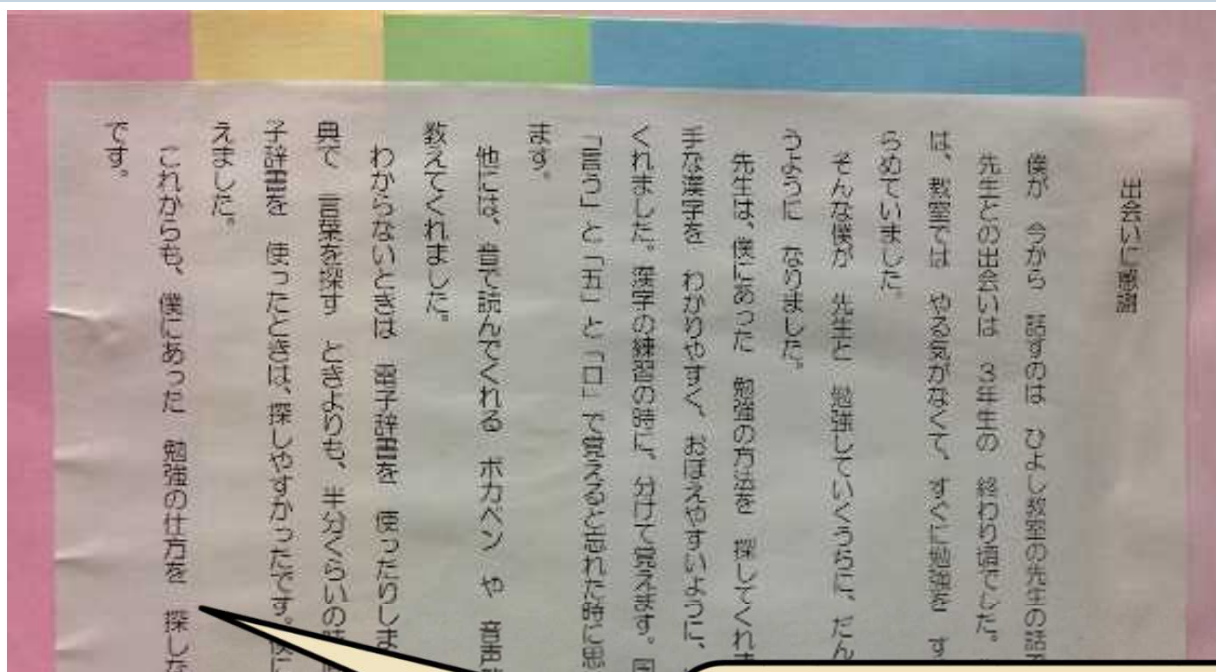 出会いに感謝
僕が 今から 話すのは ひよし教室の先生の話
先生との出会いは 3年生の 終わり頃でした。
は、教室では やる気がなくて、すぐに勉強を
らめていました。
そんな僕が 先生と 勉強していくうちに、だん
うように なりました。
先生は、僕にあった 勉強の方法を 探してくれ
手な漢字を わかりやすく、おぼえやすいように、
くれました。漢字の練習の時に、分けて覚えます。
「言う」と「五」と「口」で覚えると忘れた時に思
ます。
他には、音で読んでくれる ボカペン や 音声
教えてくれました。
わからないときは 電子辞書を 使ったりしま
典で 言葉を探す ときよりも、半分くらいの
子辞書を 使ったときは、探しやすかったです。
えました。
これからも、僕にあった 勉強の仕方を 探しな
です。